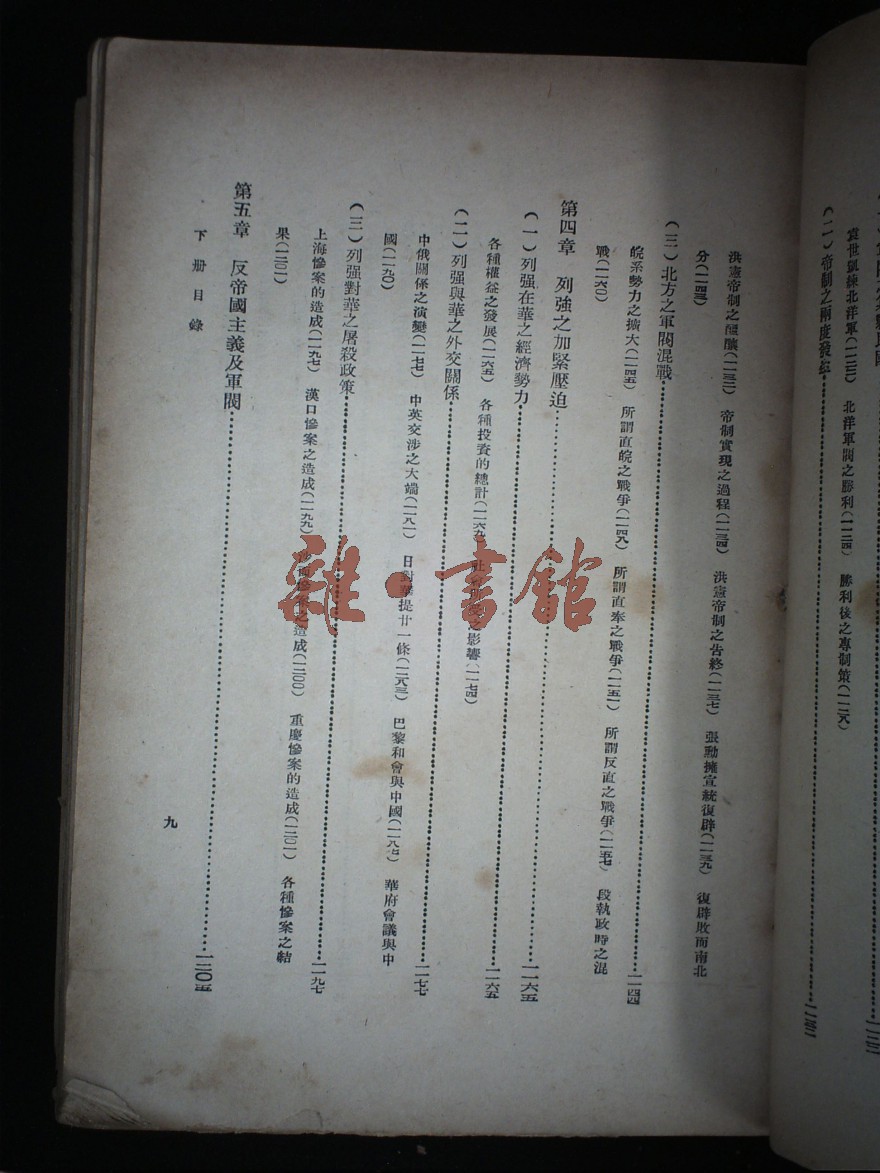 袁世凱練北洋軍(一一二三) 北洋軍閥之勝利(一一二四) 勝利後之專制策(一一二八)
(二)帝制之兩度發
洪憲帝制之醞釀(一一三二) 帝制實現之過程(一一三四) 洪憲帝制之告終(一一三七) 張勳擁宣統復辟(一一三九) 復辟敗而南北
分(一一四三)
(三)北方之軍閥混戰……一一四四
皖系勢力之擴大(一一四五) 所謂直皖之戰爭(一一四八) 所謂直奉之戰爭(一一五一) 所謂反直之戰爭(一一五七) 段執政時之混
戰(一一六〇)
第四章 列強之加緊壓迫……一一六五
(一)列强在華之經濟勢力……一一六五
各種權益之發展(一一六五) 各種投資的總計(一一六九) 社之影響(一一七四)
(二)列强與華之外交關係……一一七七
中俄關係之演變(一一七七) 中英交涉之大端(一一八一) 日對華提廿一條(一一八三) 巴黎和會與中國(一一八七) 華府會議與中
國(一一九〇)
(三)列强對華之屠殺政策……一一九七
上海慘案的造成(一一九七) 漢口慘案之造成(一一九九) 沙面慘案之造成(一二〇〇) 重慶慘案的造成(一二〇一) 各種慘案之結
果(一二〇一)
第五章 反帝國主義及軍閥……一二〇五
下冊目錄
九
雜·書館